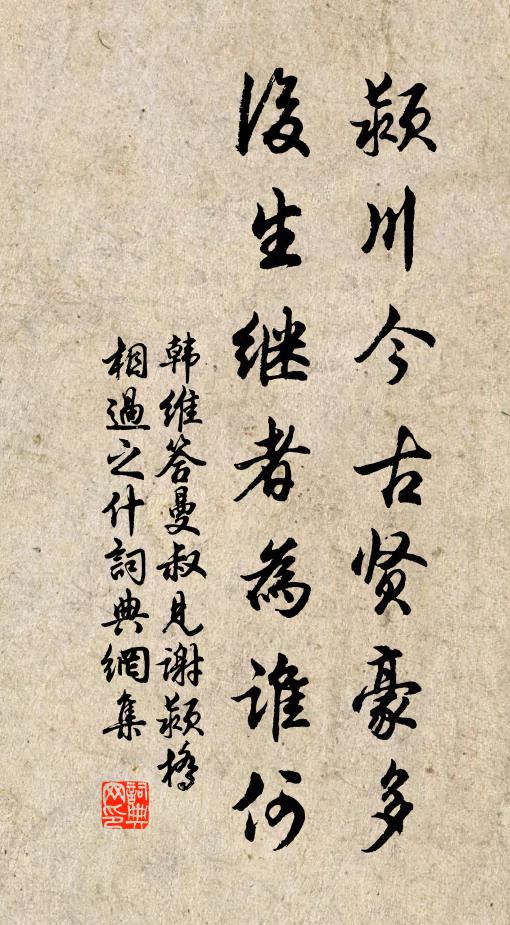 颍川今古贤豪多
後生继者為谁何
韩维答曼叔见谢颍桥
相過之什詞典網集
詞典网印